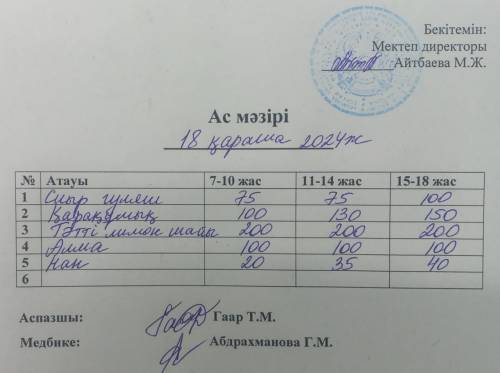 Бекітемін:
Мектеп директоры
Айтбаева М.Ж.
Ас мәзірі
18 қараша 2024ж
№ Атауы 7-10 жас 11-14 жас 15-18 жас
1 Сиыр гуляш 75 75 100
2 Қарақұмық 100 130 150
3 Тәтті лимон шайы 200 200 200
4 Алма 100 100 100
5 Нан 20 35 40
6
Аспазшы: Гаар Т.М.
Медбике: Абдрахманова Г.М.